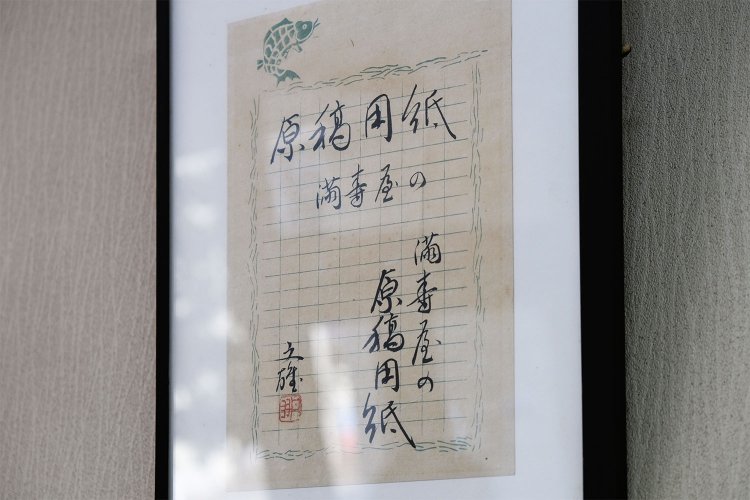 原稿用紙
満寿屋の
満寿屋の
原稿用紙
文雄